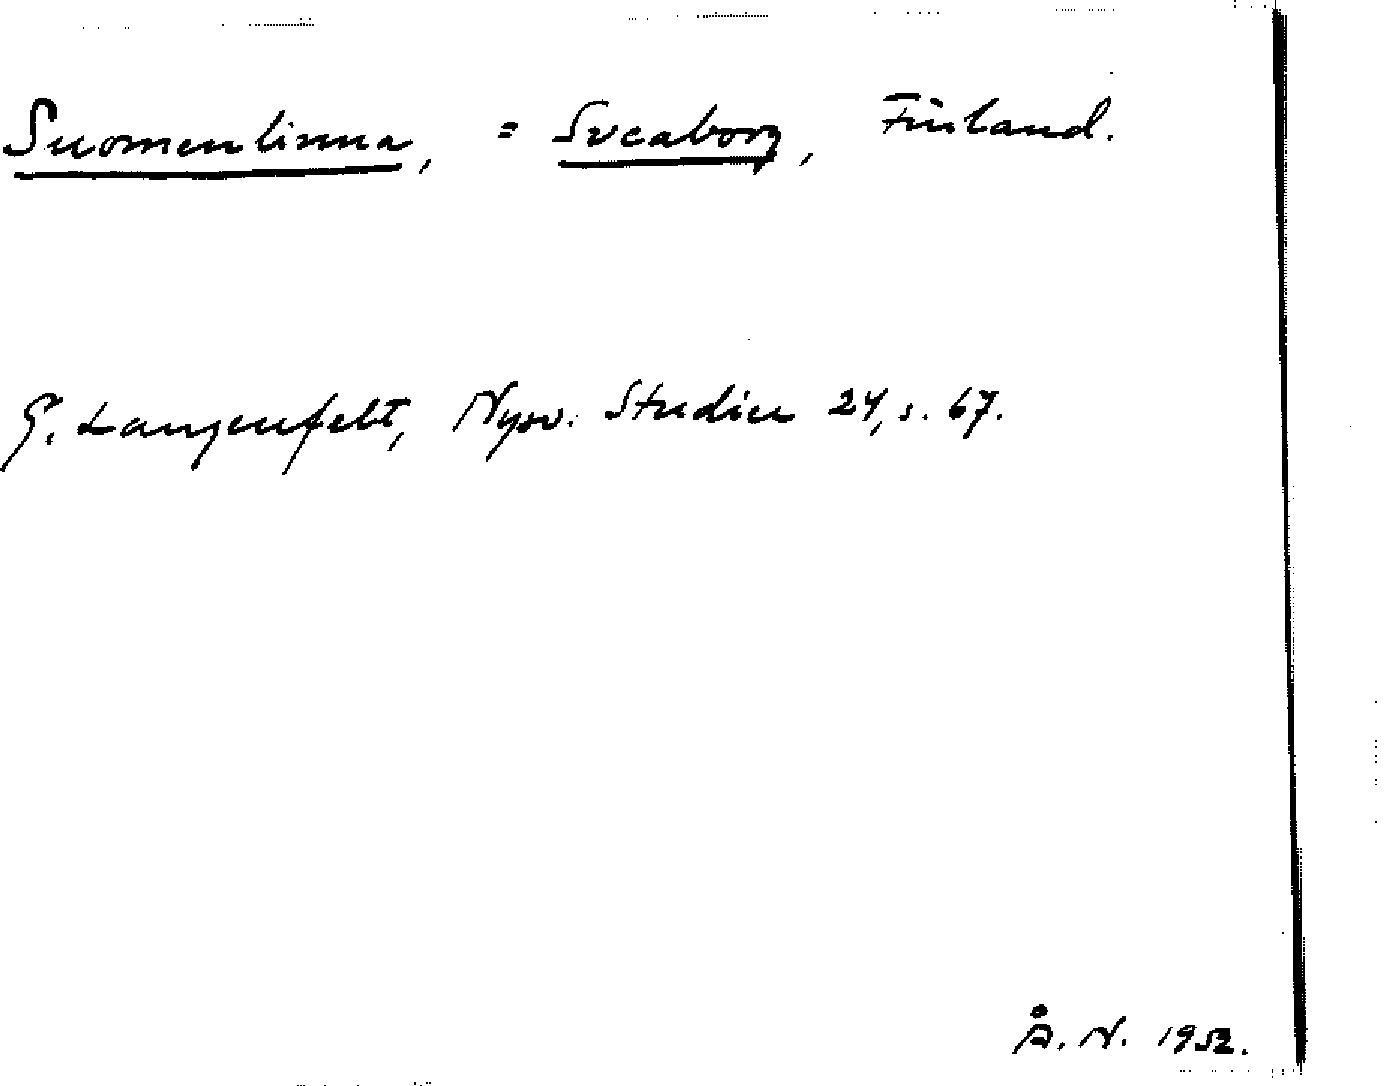 Suomenlinna, = Sveaborg, Finland.
G. Langenfelt, Nysv. Studier 24, s. 67.
Å. N. 1952.